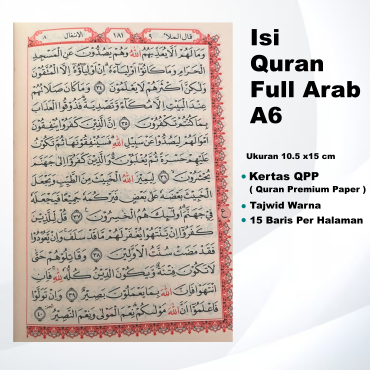 قال الملأ ٩ ١٨١ الانفال ٨
وَمَا لَهُمْ أَلَّا يُعَذِّبَهُمُ اللَّهُ وَهُمْ يَصُدُّونَ عَنِ الْمَسْجِدِ
الْحَرَامِ وَمَا كَانُوا أَوْلِيَاءَهُ إِنْ أَوْلِيَاؤُهُ إِلَّا الْمُتَّقُونَ
وَلَٰكِنَّ أَكْثَرَهُمْ لَا يَعْلَمُونَ ٣٤ وَمَا كَانَ صَلَاتُهُمْ
عِنْدَ الْبَيْتِ إِلَّا مُكَاءً وَتَصْدِيَةً فَذُوقُوا الْعَذَابَ
بِمَا كُنْتُمْ تَكْفُرُونَ ٣٥ إِنَّ الَّذِينَ كَفَرُوا يُنْفِقُونَ
أَمْوَالَهُمْ لِيَصُدُّوا عَنْ سَبِيلِ اللَّهِ فَسَيُنْفِقُونَهَا ثُمَّ تَكُونُ
عَلَيْهِمْ حَسْرَةً ثُمَّ يُغْلَبُونَ وَالَّذِينَ كَفَرُوا إِلَىٰ جَهَنَّمَ
يُحْشَرُونَ ٣٦ لِيَمِيزَ اللَّهُ الْخَبِيثَ مِنَ الطَّيِّبِ وَيَجْعَلَ
الْخَبِيثَ بَعْضَهُ عَلَىٰ بَعْضٍ فَيَرْكُمَهُ جَمِيعًا فَيَجْعَلَهُ
فِي جَهَنَّمَ أُولَٰئِكَ هُمُ الْخَاسِرُونَ ٣٧ قُلْ لِلَّذِينَ
كَفَرُوا إِنْ يَنْتَهُوا يُغْفَرْ لَهُمْ مَا قَدْ سَلَفَ وَإِنْ يَعُودُوا
فَقَدْ مَضَتْ سُنَّتُ الْأَوَّلِينَ ٣٨ وَقَاتِلُوهُمْ حَتَّىٰ
لَا تَكُونَ فِتْنَةٌ وَيَكُونَ الدِّينُ كُلُّهُ لِلَّهِ فَإِنِ
انْتَهَوْا فَإِنَّ اللَّهَ بِمَا يَعْمَلُونَ بَصِيرٌ ٣٩ وَإِنْ تَوَلَّوْا
فَاعْلَمُوا أَنَّ اللَّهَ مَوْلَاكُمْ نِعْمَ الْمَوْلَىٰ وَنِعْمَ النَّصِيرُ ٤٠
Isi
Quran
Full Arab
A6
Ukuran 10.5 x15 cm
• Kertas QPP
( Quran Premium Paper )
• Tajwid Warna
• 15 Baris Per Halaman